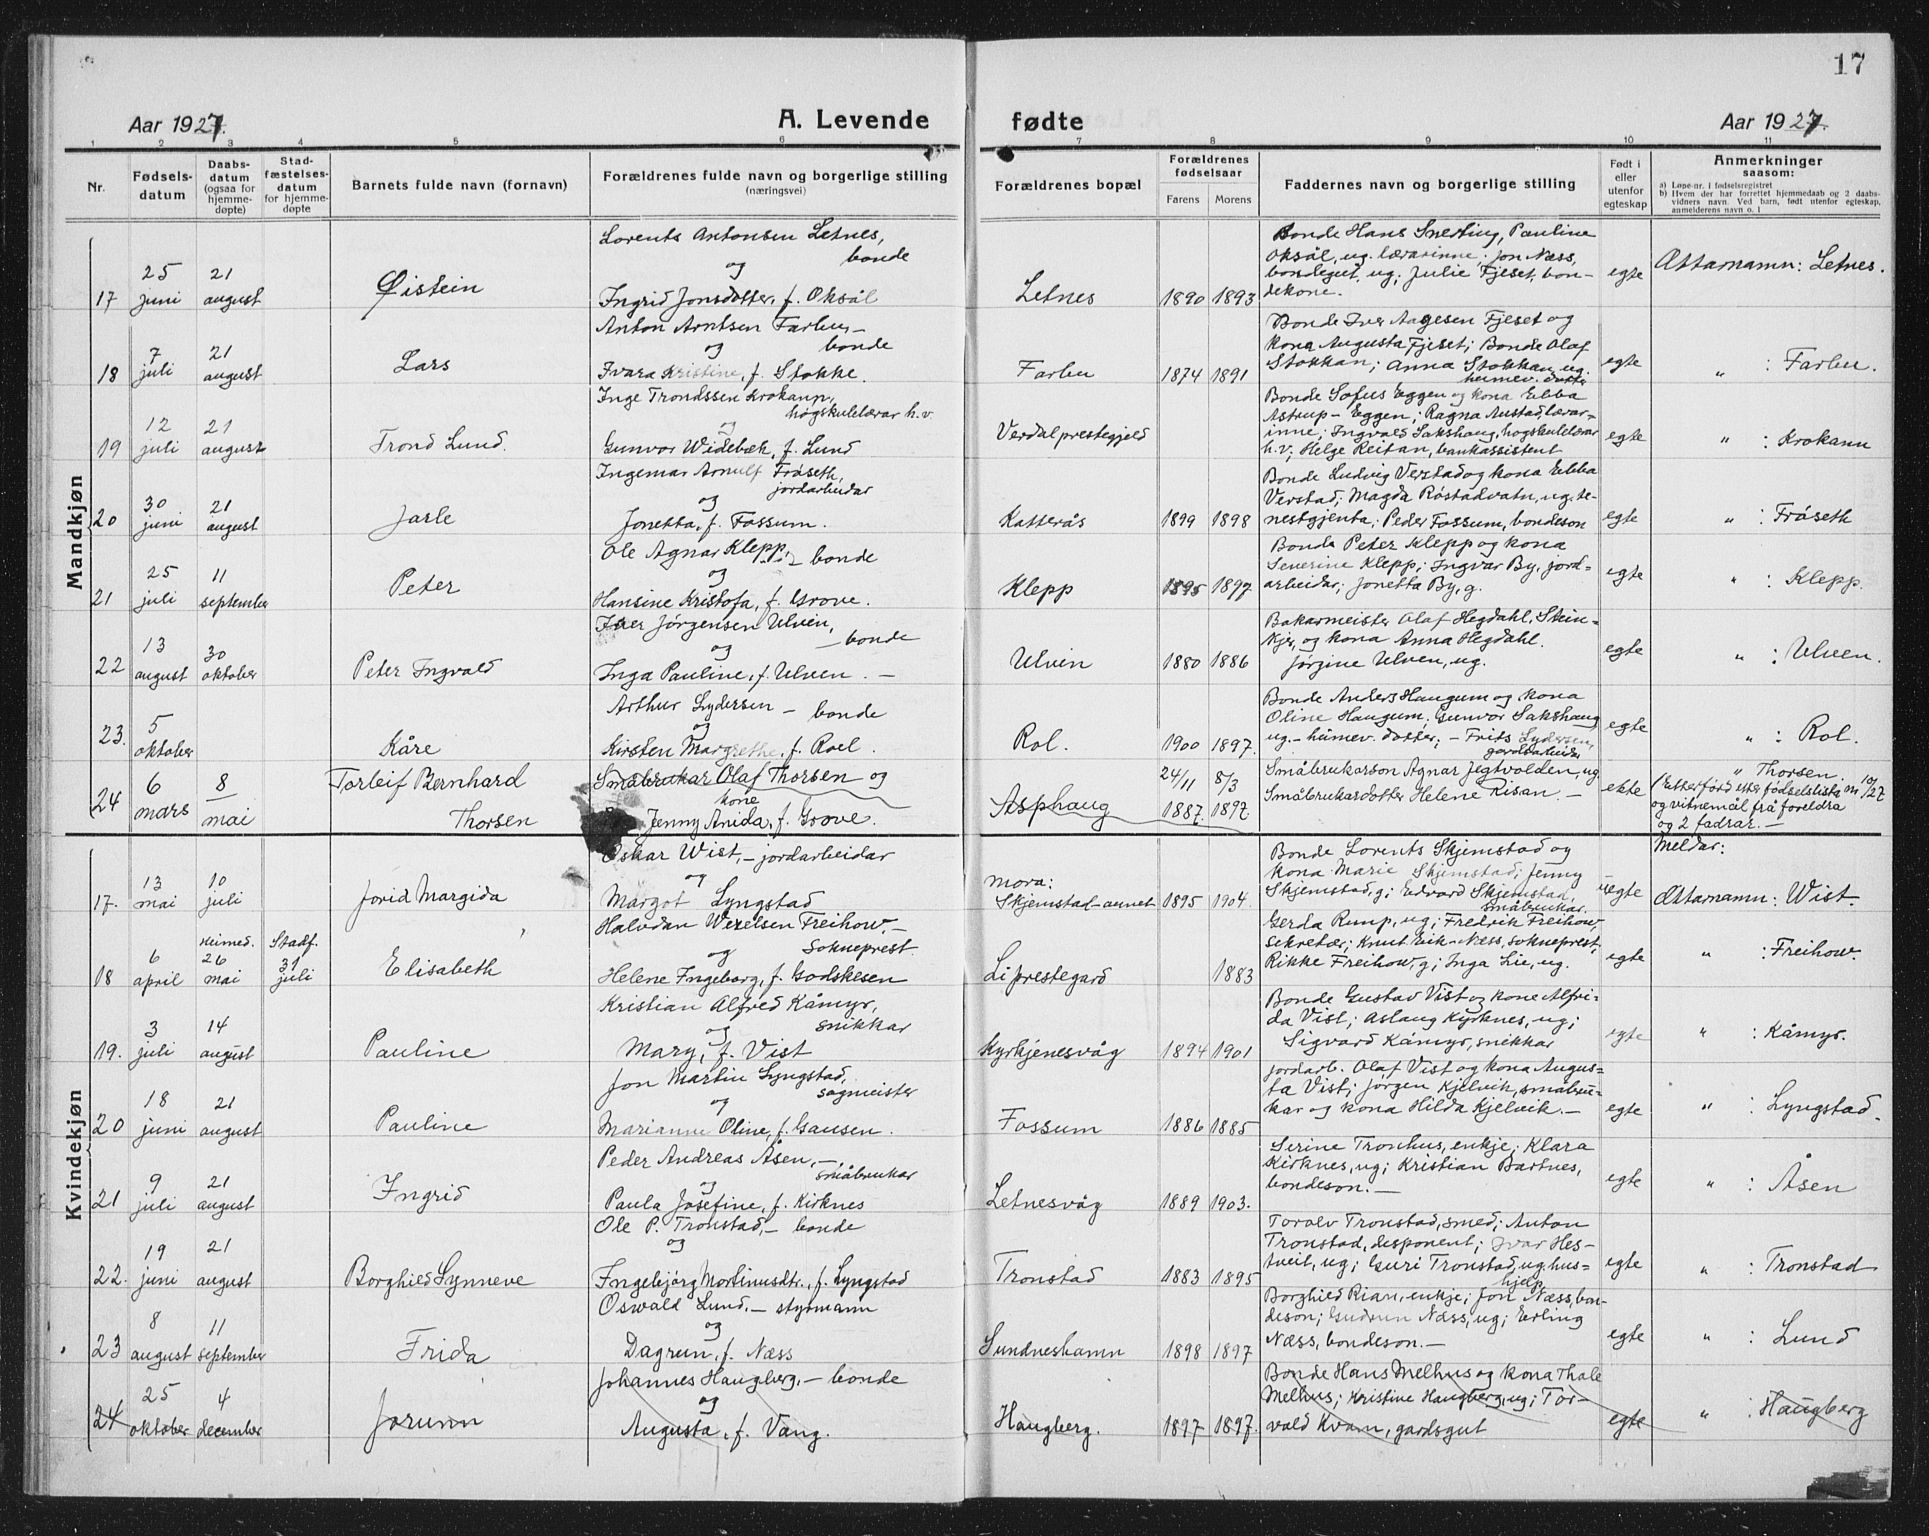 17
Aar 1927.
A. Levende
fødte
Aar 1927.
1 2 3 4 5 6 7 8 9 10 11
Nr.
Fødsels-
datum
Daabs-
datum
(ogsaa for
hjemme-
døpte)
Stad-
fæstelses-
datum
for hjemme-
døpte
Barnets fulde navn (fornavn)
Forældrenes fulde navn og borgerlige stilling
(næringsvei)
Forældrenes bopæl
Forældrenes
fødselsaar
Farens
Morens
Faddernes navn og borgerlige stilling
Født i
eller
utenfor
egteskap
Anmerkninger
saasom:
a) Løpe-nr. i fødselsregistret
b) Hvem der har forrettet hjemmedaab og 2 daabs-
vidners navn. Ved barn, født utenfor egteskap,
anmelderens navn o. l
Mandkjøn
17
25 juni
21 august
Øistein
Lorents Antonsen Letnes,
bonde
og
Ingrid Jonsdotter, f. Oksål
Letnes
1890 1893
Bonde Hans Snerting, Pauline
Oksål, ug. lærarinne; Jon Næss,
bondegut, ug; Julie Fjeset, bon-
dekone.
egte
Ættarnamn: Letnes.
18
7 juli
21 august
Lars
Anton Arntsen Farbu, –
bonde
og
Ivara Kristine, f. Stokke.
Farbu
1874 1891
Bonde Iver Aagesen Fjeset og
kona Augusta Fjeset; Bonde Olaf
Stokkan; Anna Stokkan, ug.
heimev. dotter
egte
" : Farbu.
19
12 juli
21 august
Trond Lund.
Inge Trondssen Krokann,
høgskulelærar h.v.
og
Gunvor Widebæk, f. Lund
Verdal prestegjeld
Bonde Sofus Eggen og kona Ebba
Astrup-Eggen; Ragna Austad, lærar-
inne; Ingvald Sakshaug, høgskulelærar
h.v; Helge Reitan, bankassistent
egte
" : Krokann
20
30 juni
21 august
Jarle
Ingemar Arnulf Frøseth,
jordarbeidar
og
Jonetta, f. Fossum.
Katterås
1899 1898
Bonde Ludvig Verstad og kona Ebba
Verstad; Magda Røstadvatn, ug. te-
nestgjenta; Peder Fossum, bondeson
egte
" : Frøseth
21
25 juli
11 september
Peter
Ole Agnar Klepp, – bonde
og
Hansine Kristofa, f. Grove.
Klepp
1895 1897
Bonde Peter Klepp og kona
Severine Klepp; Ingvar By, jord-
arbeidar; Jonetta By, g.
egte
" : Klepp
22
13 august
30 oktober
Peter Ingvald
Iver Jørgensen Ulven,
– bonde
og
Inga Pauline, f. Ulven. –
Ulvin
1880 1886
Bakarmeister Olaf Hegdahl, Stein-
kjer, og kona Anna Hegdahl.
Jørgine Ulven, ug.
egte
" : Ulven.
23.
5 oktober
Kåre
Arthur Lydersen – bonde
og
Kirsten Margrethe, f. Roel.
Rol.
1900 1897.
Bonde Anders Haugum og kona
Oline Haugum, Gunvor Sakshaug
ug. – heimev. dotter; – Frits Lydersen,
gardsarbeidar
egte
" : Rol.
24
6 mars
8 mai
Torleif Bernhard
Thorsen
Småbrukar Olaf Thorsen og
kone
Jenny Anida, f. Grove.
Asphaug
24/11 1887. 8/3 1892
Småbrukarson Agnar Jegtvolden, ug
Småbrukardotter Helene Risan. –
ekte
" Thorsen.
(Etterførd etter fødselslista m 10/27
og vitnemål frå foreldra
og 2 fadrar. –
Kvindekjøn
17.
13 mai
10 juli
Jorid Margida
Oskar Wist, – jordarbeidar
og
Margot Lyngstad
mora:
Skjemstad-aunet
1895 1904.
Bonde Lorents Skjemstad og
kona Marie Skjemstad; Jenny
Skjemstad, g; Edvard Skjemstad,
småbrukar.
uegte
Meldar:
Ættarnamn: Wist.
18
6 april
Heimed. 26 mai
Stadf. 31 juli
Elisabeth
Halvdan Wexelsen Freihow, –
Sokneprest
og
Helene Ingeborg, f. Godskesen
Li prestegard
1883
Gerda Rump, ug; Fredrik Freihow,
sekretær; Knut Eik-Næss, sokneprest,
Rikke Freihow, g; Inga Lie, ug.
egte
" : Freihow.
19.
3 juli
14 august
Pauline
Kristian Alfred Kåmyr,
snikkar
og
Mary, f. Vist
Kyrkjenesvåg
1894 1901
Bonde Gustav Vist og kone Alfri-
da Vist; Aslaug Kyrknes, ug;
Sigvard Kåmyr, snikkar
egte
" : Kåmyr.
20
18 juni
21 august
Pauline
Jon Martin Lyngstad,
sagmeister
og
Marianne Oline, f. Gausen.
Fossum
1886 1885
Jordarb. Olaf Vist og kona Augus-
ta Vist; Jørgen Kjelvik, småbru-
kar og kona Hilda Kjelvik. –
egte
" : Lyngstad.
21
9 juli
21 august
Ingrid
Peder Andreas Åsen, –
småbrukar
og
Paula Josefine, f. Kirknes
Letnesvåg
1889 1903.
Serine Tronhus, enkje; Klara
Kirknes, ug; Kristian Bartnes,
bondeson. –
egte
" : Åsen
22.
19 juni
21 august
Borghied Synneve
Ole P. Tronstad, – bonde
og
Ingebjørg Mortinusdtr., f. Lyngstad
Tronstad
1883 1895
Toralv Tronstad, smed; Anton
Tronstad, disponent; Ivar Hes-
tveit, ug; Guri Tronstad, ug. hus-
hjelp
egte
" : Tronstad
23
8 august
11 september
Frida
Oswald Lund, – styrmann
og
Dagrun, f. Næss
Sundneshamn
1898 1897
Borghied Rian, enkje; Jon Næss, bon-
deson; Gudrun Næss, ug; Erling
Næss, bondeson. –
egte
" : Lund
24
25 oktober
4 december
Jorunn
Johannes Haugberg, – bonde
og
Augusta, f. Vang.
Haugberg.
1897 1897.
Bonde Hans Melhus og kona Thale
Melhus; Kristine Haugberg, ug; Tor-
vald Kvam, gardsgut
egte
" : Haugberg